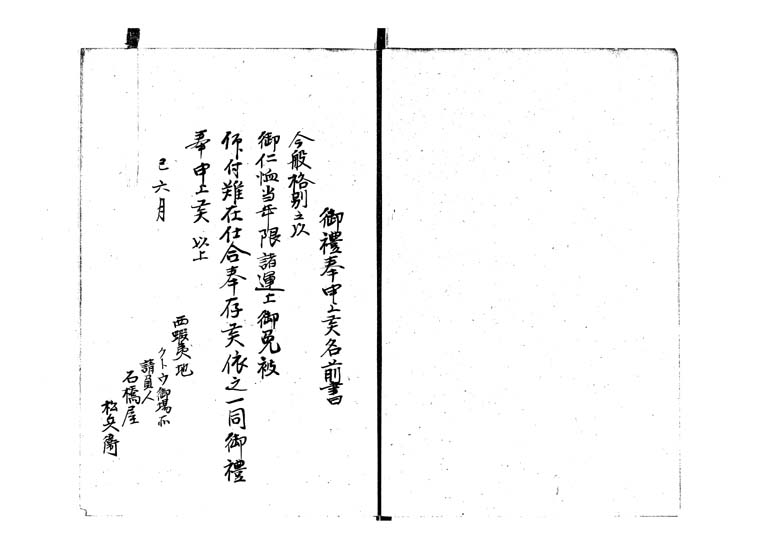 御禮奉申上候名前書
今般格別之以
御仁恤当年限諸運上御免被
仰付難在仕合奉存候依之一同御禮
奉申上候 以上
巳六月
西蝦夷地
クトウ御場所
請負人
石橋屋
松兵衛